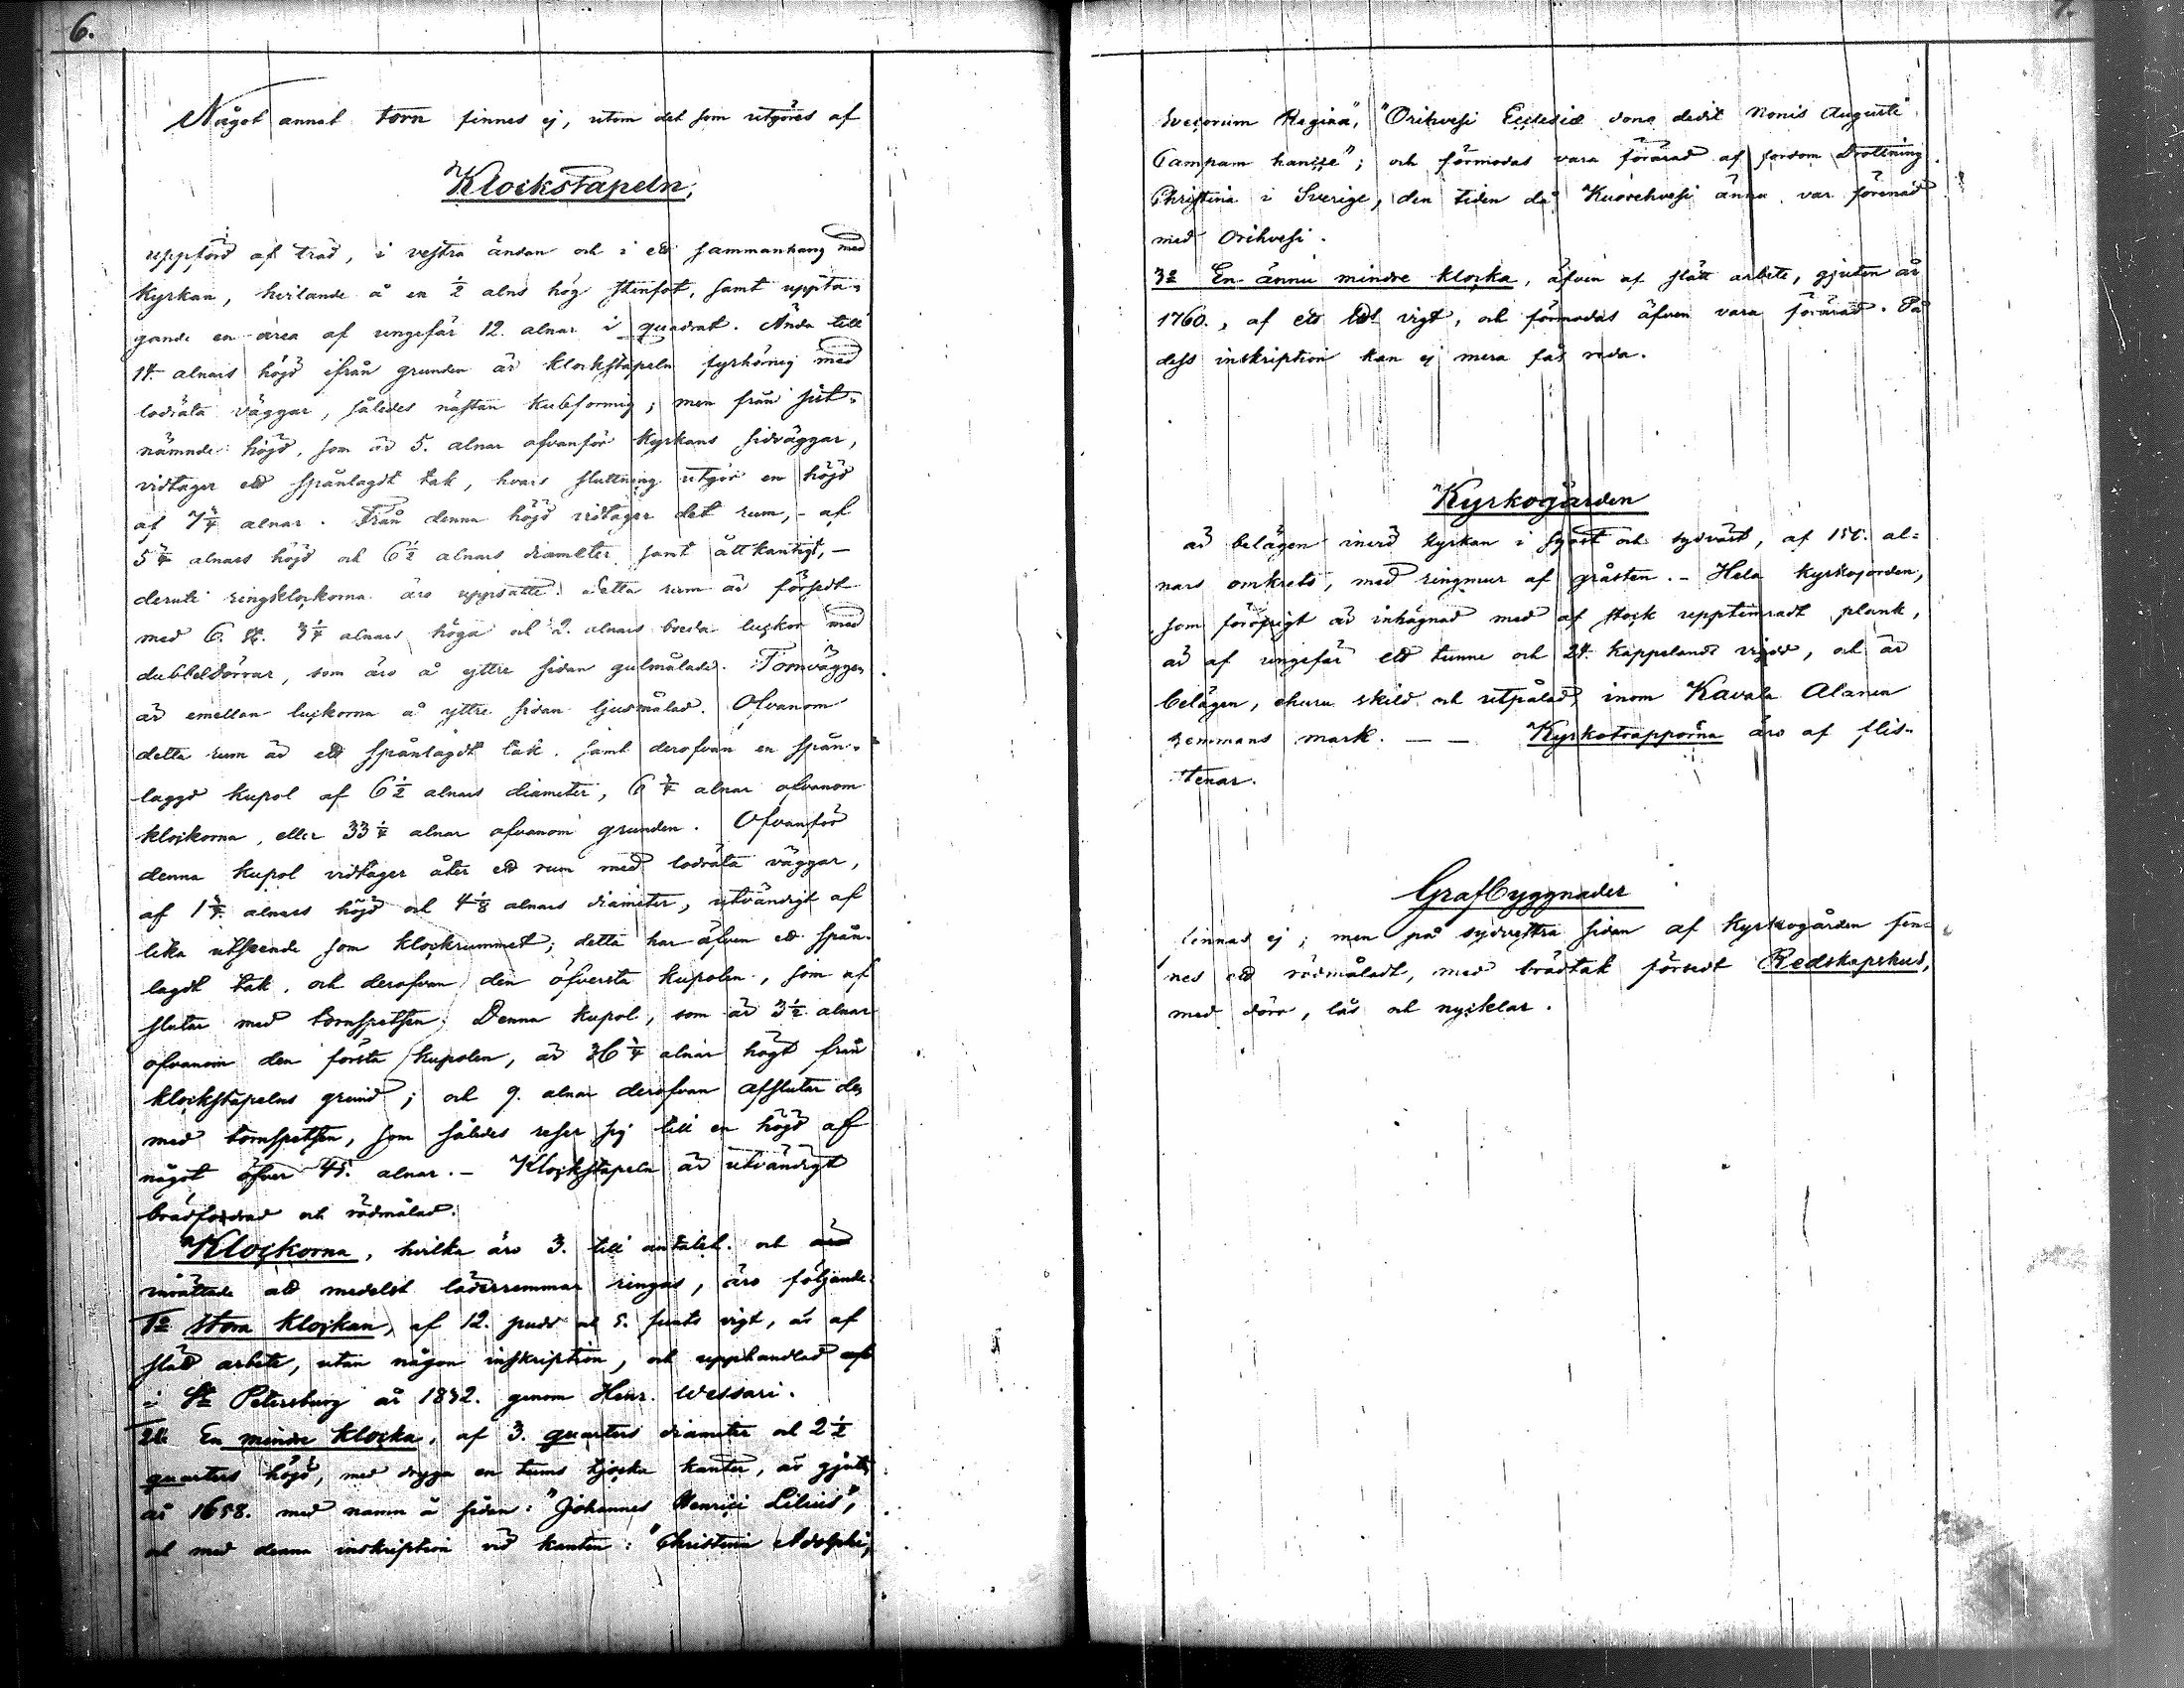 6.
Något annat torn finnes ej, utom det som utgöres af
Klockstapeln,
uppförd af träd, i vestra ändan och i ett sammanhang med
kyrkan, hvilande å en ½ alns hög stenfot, samt uppta-
gande en area af ungefär 12. alnar i quadrat. Ända till
14. alnars höjd ifrån grunden är klockstapeln fyrhörnig med
lodräta väggar, således nästan kubformig; men från sist-
nämnde höjd, som är 5. alnar ofvanför kyrkans sidväggar,
vidtager ett spånlagdt tak, hvars sluttning utgör en höjd
af 7¾ alnar. Från denna höjd vidtager det rum, - af
5¾ alnars höjd och 6½ alnars diameter samt åttkantigt, -
deruti ringklockorna äro uppsatte. Detta rum är försedt
med 6. st. 3¼ alnars höga och 2. alnars breda luckor med
dubbeldörrar, som äro å yttre sidan gulmålade. Tornväggen
är emellan luckorna å yttre sidan ljusmålad. Ofvanom
detta rum är ett spånlagdt tak. samt derofvan en spån-
laggd kupol af 6½ alnars diameter, 6¾ alnar ofvanom
klockorna, eller 33¼ alnar ofvanom grunden. Ofvanför
denna kupol vidtager åter ett rum med lodräta väggar,
af 1¾ alnars höjd och 4⅛ alnars diameter, utvändigt af
lika utseende som klockrummet; detta har äfven ett spån-
lagdt tak, och derofvan den öfversta kupolen, som af
slutar med tornspetsen. Denna kupol, som är 3½ alnar
ofvanom den första kupolen, är 36¾ alnar högt från
klockstapelns grund; och 9. alnar derofvan afslutar den
med tornspetsen, som således reser sig till en höjd af
något öfver 45. alnar. - Klockstapeln är utvändigt
brädfordrad och rödmålad.
Klockorna, hvilka äro 3. till antalet. och äro
inrättade att medelst läderremmar ringas, äro följande:
1º stora klockan, af 12. pud och 5. punds vigt, är af
slätt arbete, utan någon inskription, och upphandlad af
i St Petersburg år 1832. genom Henr. Wessari.
2º. En mindre klocka, af 3. quarters diameter och 2½
quarters höjd, med dryga en tums tjocka kanter, är gjuten
år 1658. med namn å sidan: "Johannes Henrici Lilius",
och med denna inskription vid kanten: "Christina Adolphi,
7.
Svecorum Regina", "Orihvesi Ecclesiæ dona dedit Nonis Augusti
Campam hancce"; och förmodas vara förärad af fordom Drottning
Christina i Sverige, den tiden då Kuorehvesi ännu var förenad
med Orihvesi.
3º En ännu mindre klocka, äfven af slätt arbete, gjuten år
1760., af ett vigt, och förmodas äfven vara förärad. På
dess inskription kan ej mera fås reda.
Kyrkogården
är belägen invid kyrkan i sydost och sydvest, af 150. al-
nars omkrets, med ringmur af gråsten. - Hela kyrkojorden,
som föröfrigt är inhägnad med af stock upptimradt plank,
är af ungefär ett tunne och 24. kappelands vidd, och är
belägen, ehuru skild och utpålad, inom Kavala Alanen
hemmans mark. - - Kyrkotrapporna äro af flis-
stenar.
Grafbyggnader
finnas ej; men på sydvestra sidan af kyrkogården fin-
nes ett rödmåladt, med brädtak försedt Redskapshus,
med dörr, lås och nycklar.